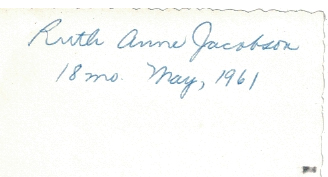 Ruth Anne Jacobson
18 mo. May, 1961